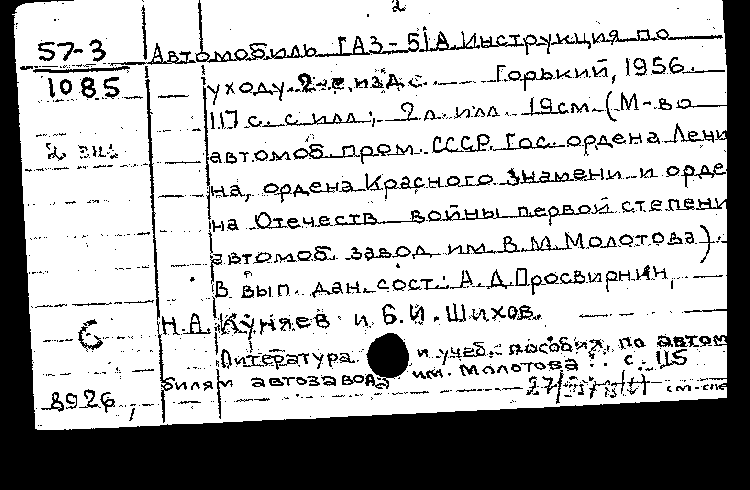 2
57-3 Автомобиль ГАЗ-51А. Инструкция по
1085 уходу. 2-е изд. Горький, 1956.
117 с. с илл; 2 л. илл. 19см. (М-во
2 экз автомоб. пром. СССР. Гос. ордена Лени
на, ордена Красного Знамени и орде
на Отечеств войны первой степени
автомоб. завод им. В.М. Молотова).
В вып. дан. сост.: А.Д. Просвирнин,
6 Н.А. Куняев и Б.И. Шихов.
Литература и учеб. пособия, по автом
билям автозавода им. Молотова: с. 115
8926,